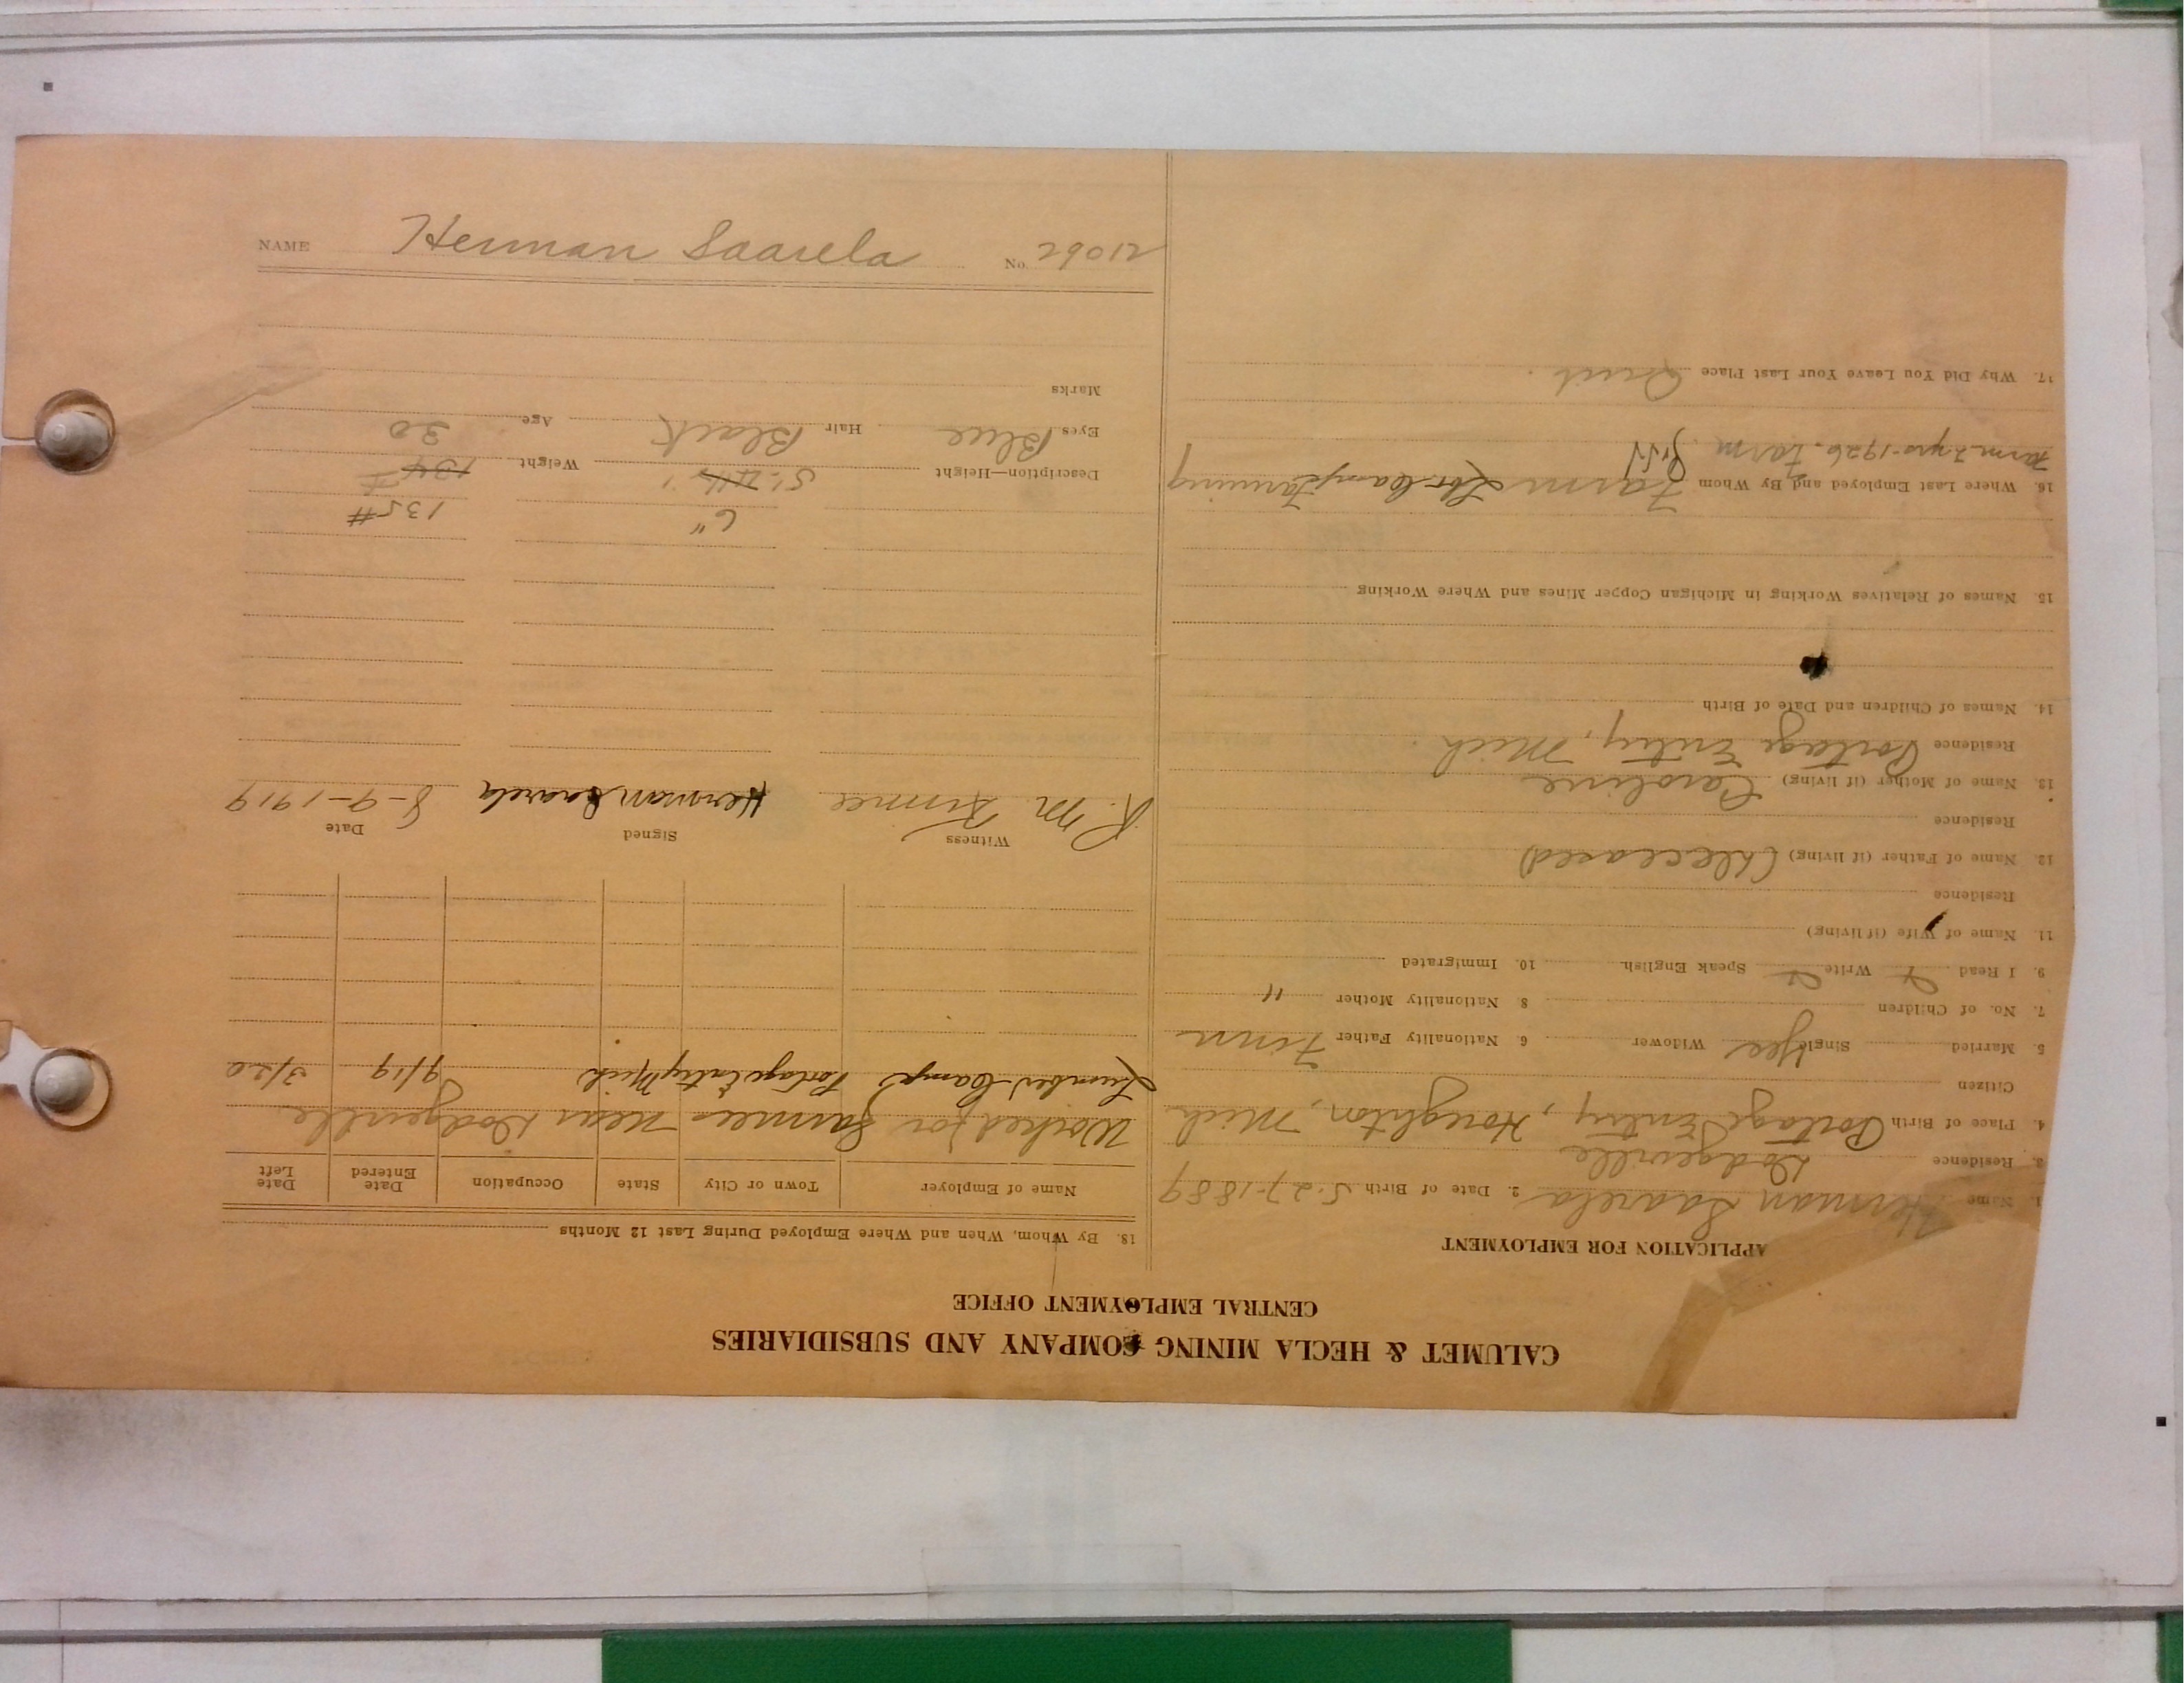 CALUMET & HECLA MINING COMPANY AND SUBSIDIARIES
CENTRAL EMPLOYMENT OFFICE
APPLICATION FOR EMPLOYMENT
1. Name Herman Saarela 2. Date of Birth 5-27-1889
3. Residence Dodgeville
4. Place of Birth Portage Entry, Houghton, Mich
Citizen
5. Married Single Yes Widower 6. Nationality Father Finn
7. No. of Children 8. Nationality Mother "
9. I Read Write Speak English 10. Immigrated
11. Name of Wife (if living)
Residence
12. Name of Father (if living) (Deceased)
Residence
13. Name of Mother (if living) Caroline
Residence Portage Entry, Mich.
14. Names of Children and Date of Birth
15. Names of Relatives Working in Michigan Copper Mines and Where Working
16. Where Last Employed and By Whom Farm Camp Farming
Farm 2 yrs-1926. Farm
17. Why Did You Leave Your Last Place Quit.
18. By Whom, When and Where Employed During Last 12 Months
Name of Employer Town or City State Occupation Date Entered Date Left
Worked for Farmer near Dodgeville
Lumber Camp Portage Entry Mich 9/19 3/20
Witness Signed Date
R. M. Herman Saarela 8-9-1919
6" 135#
Description—Height Weight
Eyes Blue Hair Black Age 30
Marks
NAME Herman Saarela No. 29012